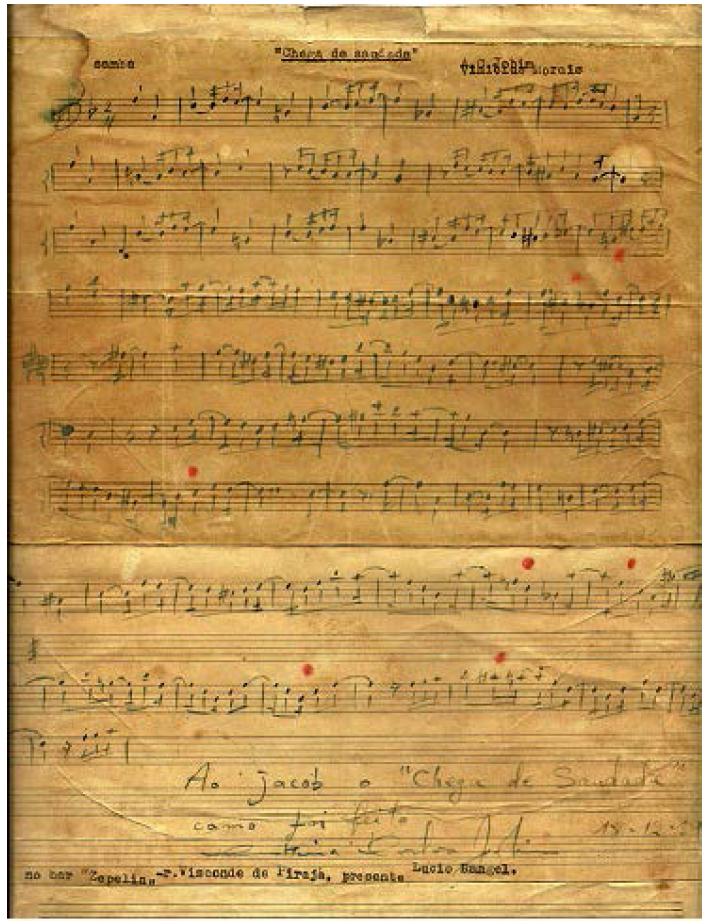 "Chega de saudade"
samba
A.C.Jobim
Vinicius Morais
Ao Jacob o "Chega de Saudade"
como foi feito
Antonio Carlos Jobim
18-12-
no bar "Zepelin" -r.Visconde de Pirajá, presente Lucio Rangel.